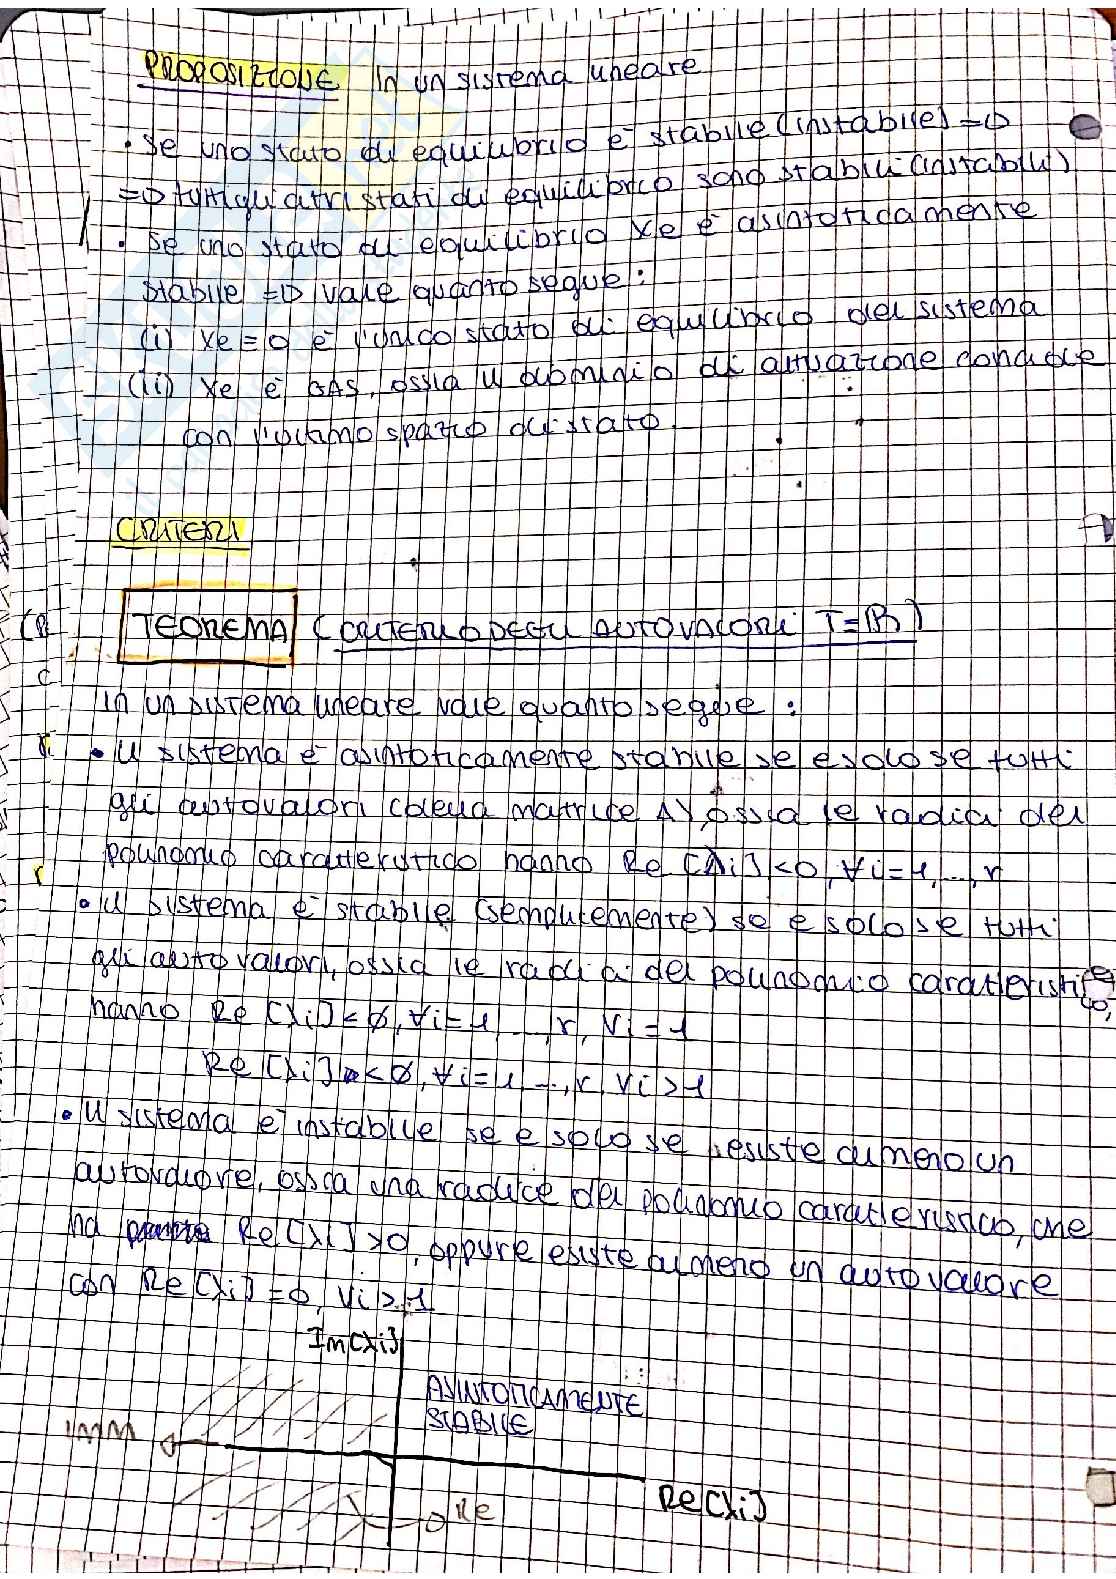 PROPOSIZIONE In un sistema lineare
• Se uno stato di equilibrio è stabile (instabile) =D
=D tutti gli altri stati di equilibrio sono stabili (instabili)
• Se uno stato di equilibrio Xe è asintoticamente
stabile =D vale quanto segue:
(i) Xe = 0 è l'unico stato di equilibrio del sistema
(ii) Xe è GAS, ossia il dominio di attrazione coincide
con l'ultimo spazio di stato.
CRITERI
TEOREMA (CRITERIO DEGLI AUTOVALORI T=ℝ)
In un sistema lineare vale quanto segue:
• Il sistema è asintoticamente stabile se e solo se tutti
gli autovalori (della matrice A), ossia le radici del
polinomio caratteristico hanno Re[λi] < 0, ∀i=1,...,r
• Il sistema è stabile (semplicemente) se e solo se tutti
gli autovalori, ossia le radici del polinomio caratteristico,
hanno Re[λi] ≤ 0, ∀i=1,...,r, νi = 1
Re[λi] < 0, ∀i=1,...,r, νi > 1
• Il sistema è instabile se e solo se esiste almeno un
autovalore, ossia una radice del polinomio caratteristico, che
ha Re[λi] > 0, oppure esiste almeno un autovalore
con Re[λi] = 0, νi > 1
Im[λi]
ASINTOTICAMENTE
STABILE
IMM
Re[λi]
Re